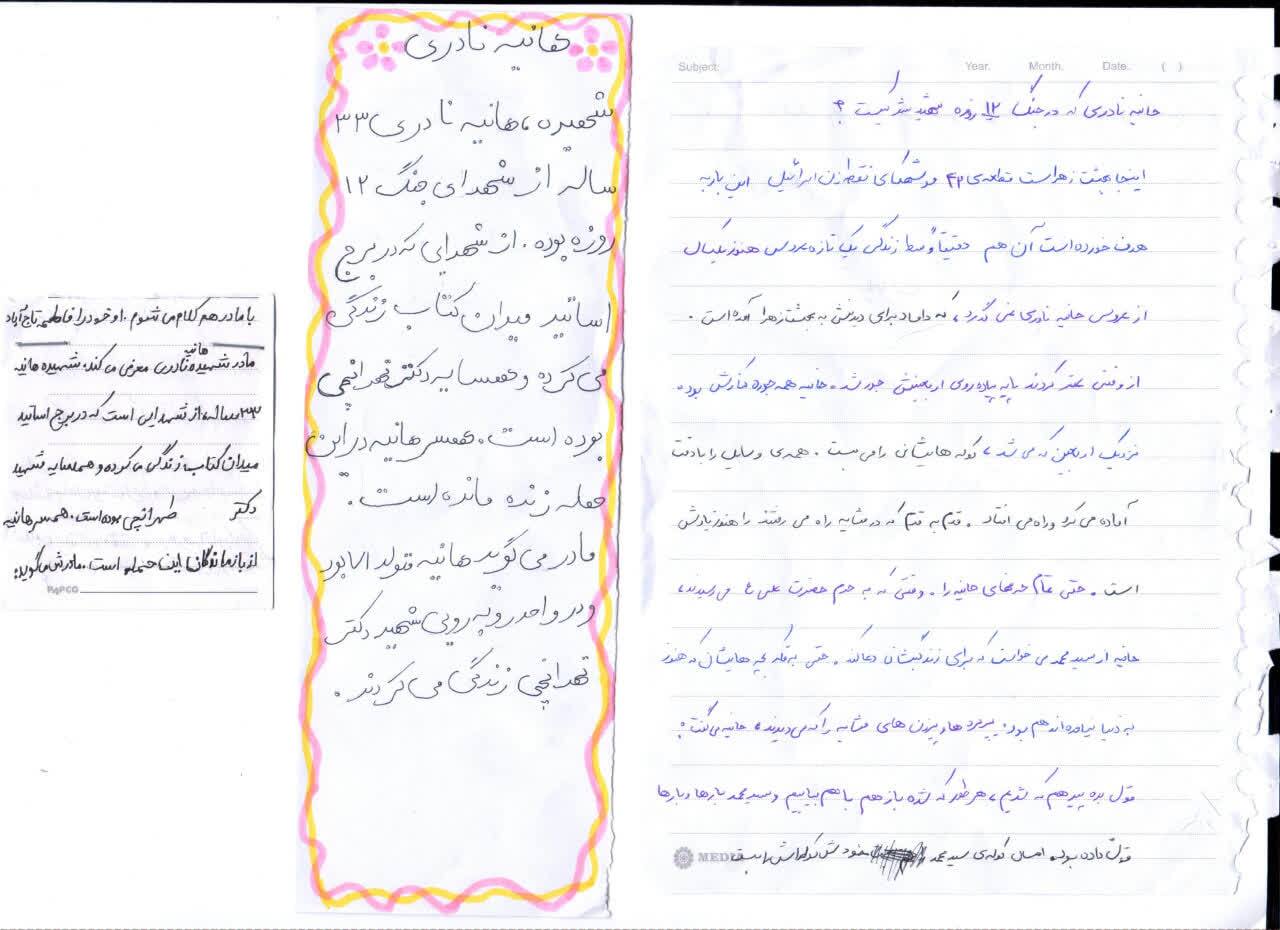 Subject: Year. Month. Date. ( )
حانیه نادری که در جنگ ۱۲ روزه شهید شد کیست ؟
اینجا بهشت زهراست قطعه‌ی ۴۲ موشکهای نقطه‌زن اسرائیل این بار به
هدف خورده است آن هم دقیقاً وسط زندگی یک تازه عروس هنوز یکسال
از عروسی حانیه نادری نمی گذرد، که داماد برای دیدنش به بهشت زهرا آمده است.
از وقتی عقد کردند پایه پیاده روی اربعینش جور شد. حانیه همه جوره کنارش بود.
نزدیک اربعین که می شد، کوله هایشان را می بست. همه‌ی وسایل را با دقت
آماده می کرد و راه می افتاد. قدم به قدم که در مشایه راه می رفتند را هنوز یادش
است. حتی تمام حرفهای حانیه را. وقتی که به حرم حضرت علی ع می رسیدند،
حانیه از سید محمد می خواست که برای زندگیشان دعا کند. حتی به فکر بچه هایشان که هنوز
به دنیا نیامده اند هم بود. پیرمردها و پیرزن های مشایه را که می دیدند، حانیه می گفت:
قول بده پیر هم که شدیم، هرطور که شده باز هم با هم بیاییم و سید محمد بارها و بارها
قول داده بود. امسال کوله‌ی سید محمد خودش کوله‌اش را بست
هانیه نادری
شهیده، هانیه نادری ۳۳
ساله از شهدای جنگ ۱۲
روزه بوده. از شهدایی که در برج
اساتید میدان کتاب زندگی
می کرده و همسایه دکتر تهرانچی
بوده است. همسر هانیه در این
حمله زنده مانده است.
مادر می گوید هانیه متولد ۷۱ بود
و در واحد روبه رویی شهید دکتر
تهرانچی زندگی می کردند.
با مادر هم کلام می شوم. او خود را فاطمه تاج آباد
مادر شهیده هانیه نادری معرفی می کند. شهیده هانیه
۳۳ ساله، از شهدایی است که در برج اساتید
میدان کتاب زندگی می کرده و همسایه شهید
دکتر طهرانچی بوده است. همسر هانیه
از بازماندگان این حمله است. مادرش می گوید:
PAPCO